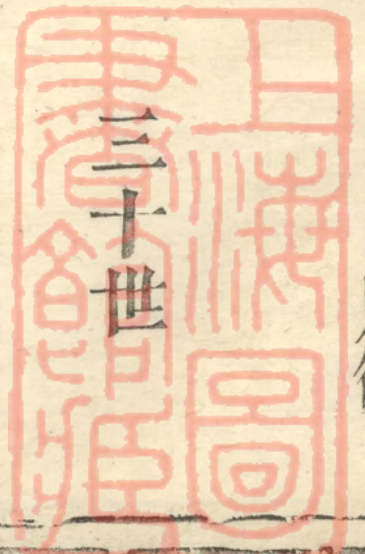 上海圖
書館藏
三十世